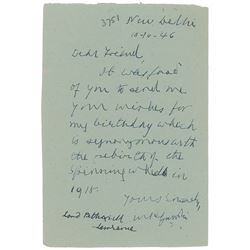 New Delhi
18-10-46
Dear Friend,
It was good
of you to send me
your wishes for
my birthday which
is synonymous with
the rebirth of the
spinning wheel in
1918.
Yours sincerely,
Lord Pethick
Lawrence